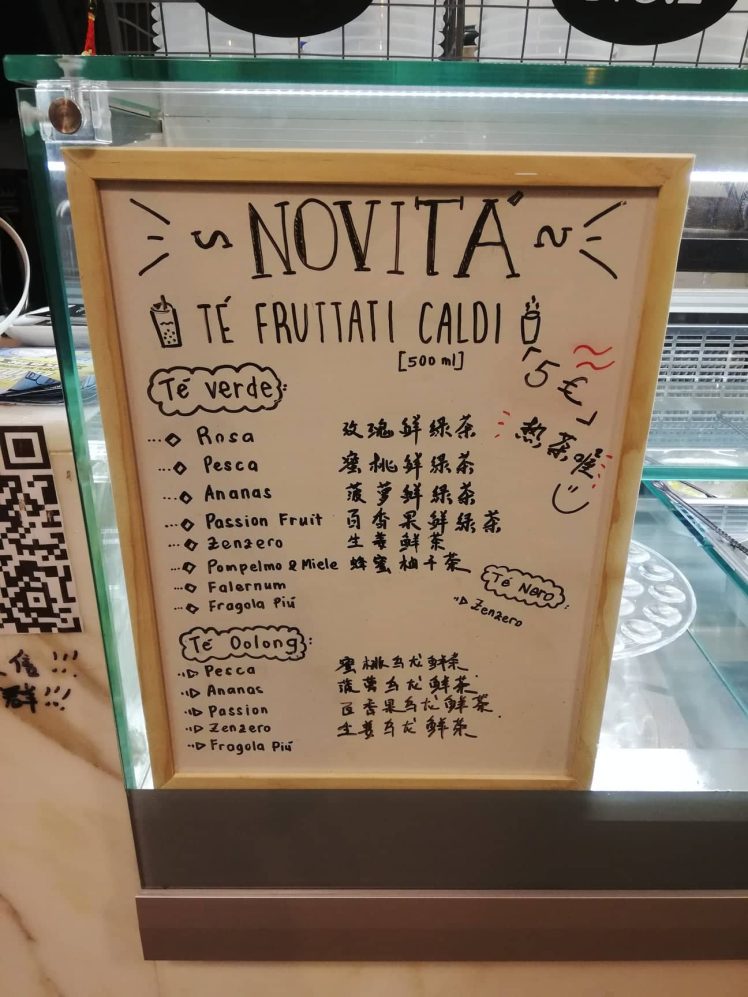 NOVITÀ
TÉ FRUTTATI CALDI
[500 ml]
「5 €」
热茶喔
Té verde:
Rosa 玫瑰鲜绿茶
Pesca 蜜桃鲜绿茶
Ananas 菠萝鲜绿茶
Passion Fruit 百香果鲜绿茶
Zenzero 生姜鲜茶
Pompelmo & Miele 蜂蜜柚子茶
Falernum
Fragola Piú
Té Nero:
Zenzero
Té Oolong:
Pesca 蜜桃乌龙鲜茶
Ananas 菠萝乌龙鲜茶
Passion 百香果乌龙鲜茶
Zenzero 生姜乌龙鲜茶
Fragola Piú
信!!!
群!!!